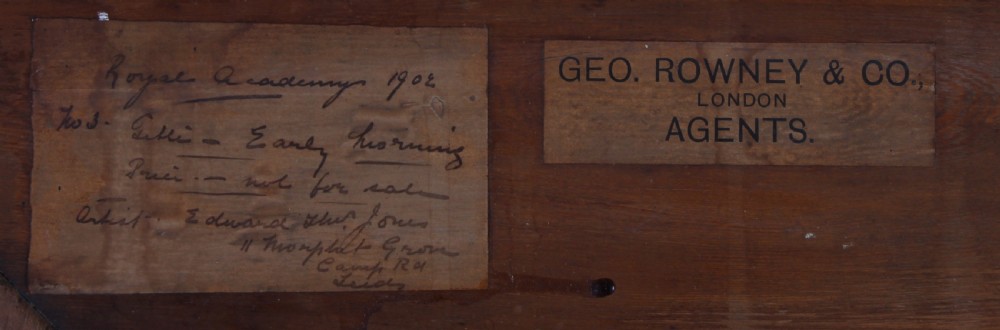 Royal Academy 1902
No 3. Title - Early Morning
Price. - not for sale
Artist. Edward Thos. Jones
11 Grove
Camp Rd
Leeds
GEO. ROWNEY & CO.,
LONDON
AGENTS.